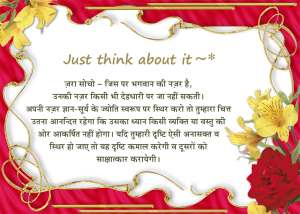 Just think about it ~*
ज़रा सोचो – जिस पर भगवान की नज़र है,
उनकी नज़र किसी भी देहधारी पर जा नहीं सकती।
अपनी नज़र ज्ञान-सूर्य के ज्योति स्वरूप पर स्थिर करो तो तुम्हारा चित्त
उतना आनन्दित रहेगा कि उसका ध्यान किसी व्यक्ति या वस्तु की
ओर आकर्षित नहीं होगा। यदि तुम्हारी दृष्टि ऐसी अनासक्त व
स्थिर हो जाए तो यह दृष्टि कमाल करेगी व दूसरों को
साक्षात्कार करायेगी।